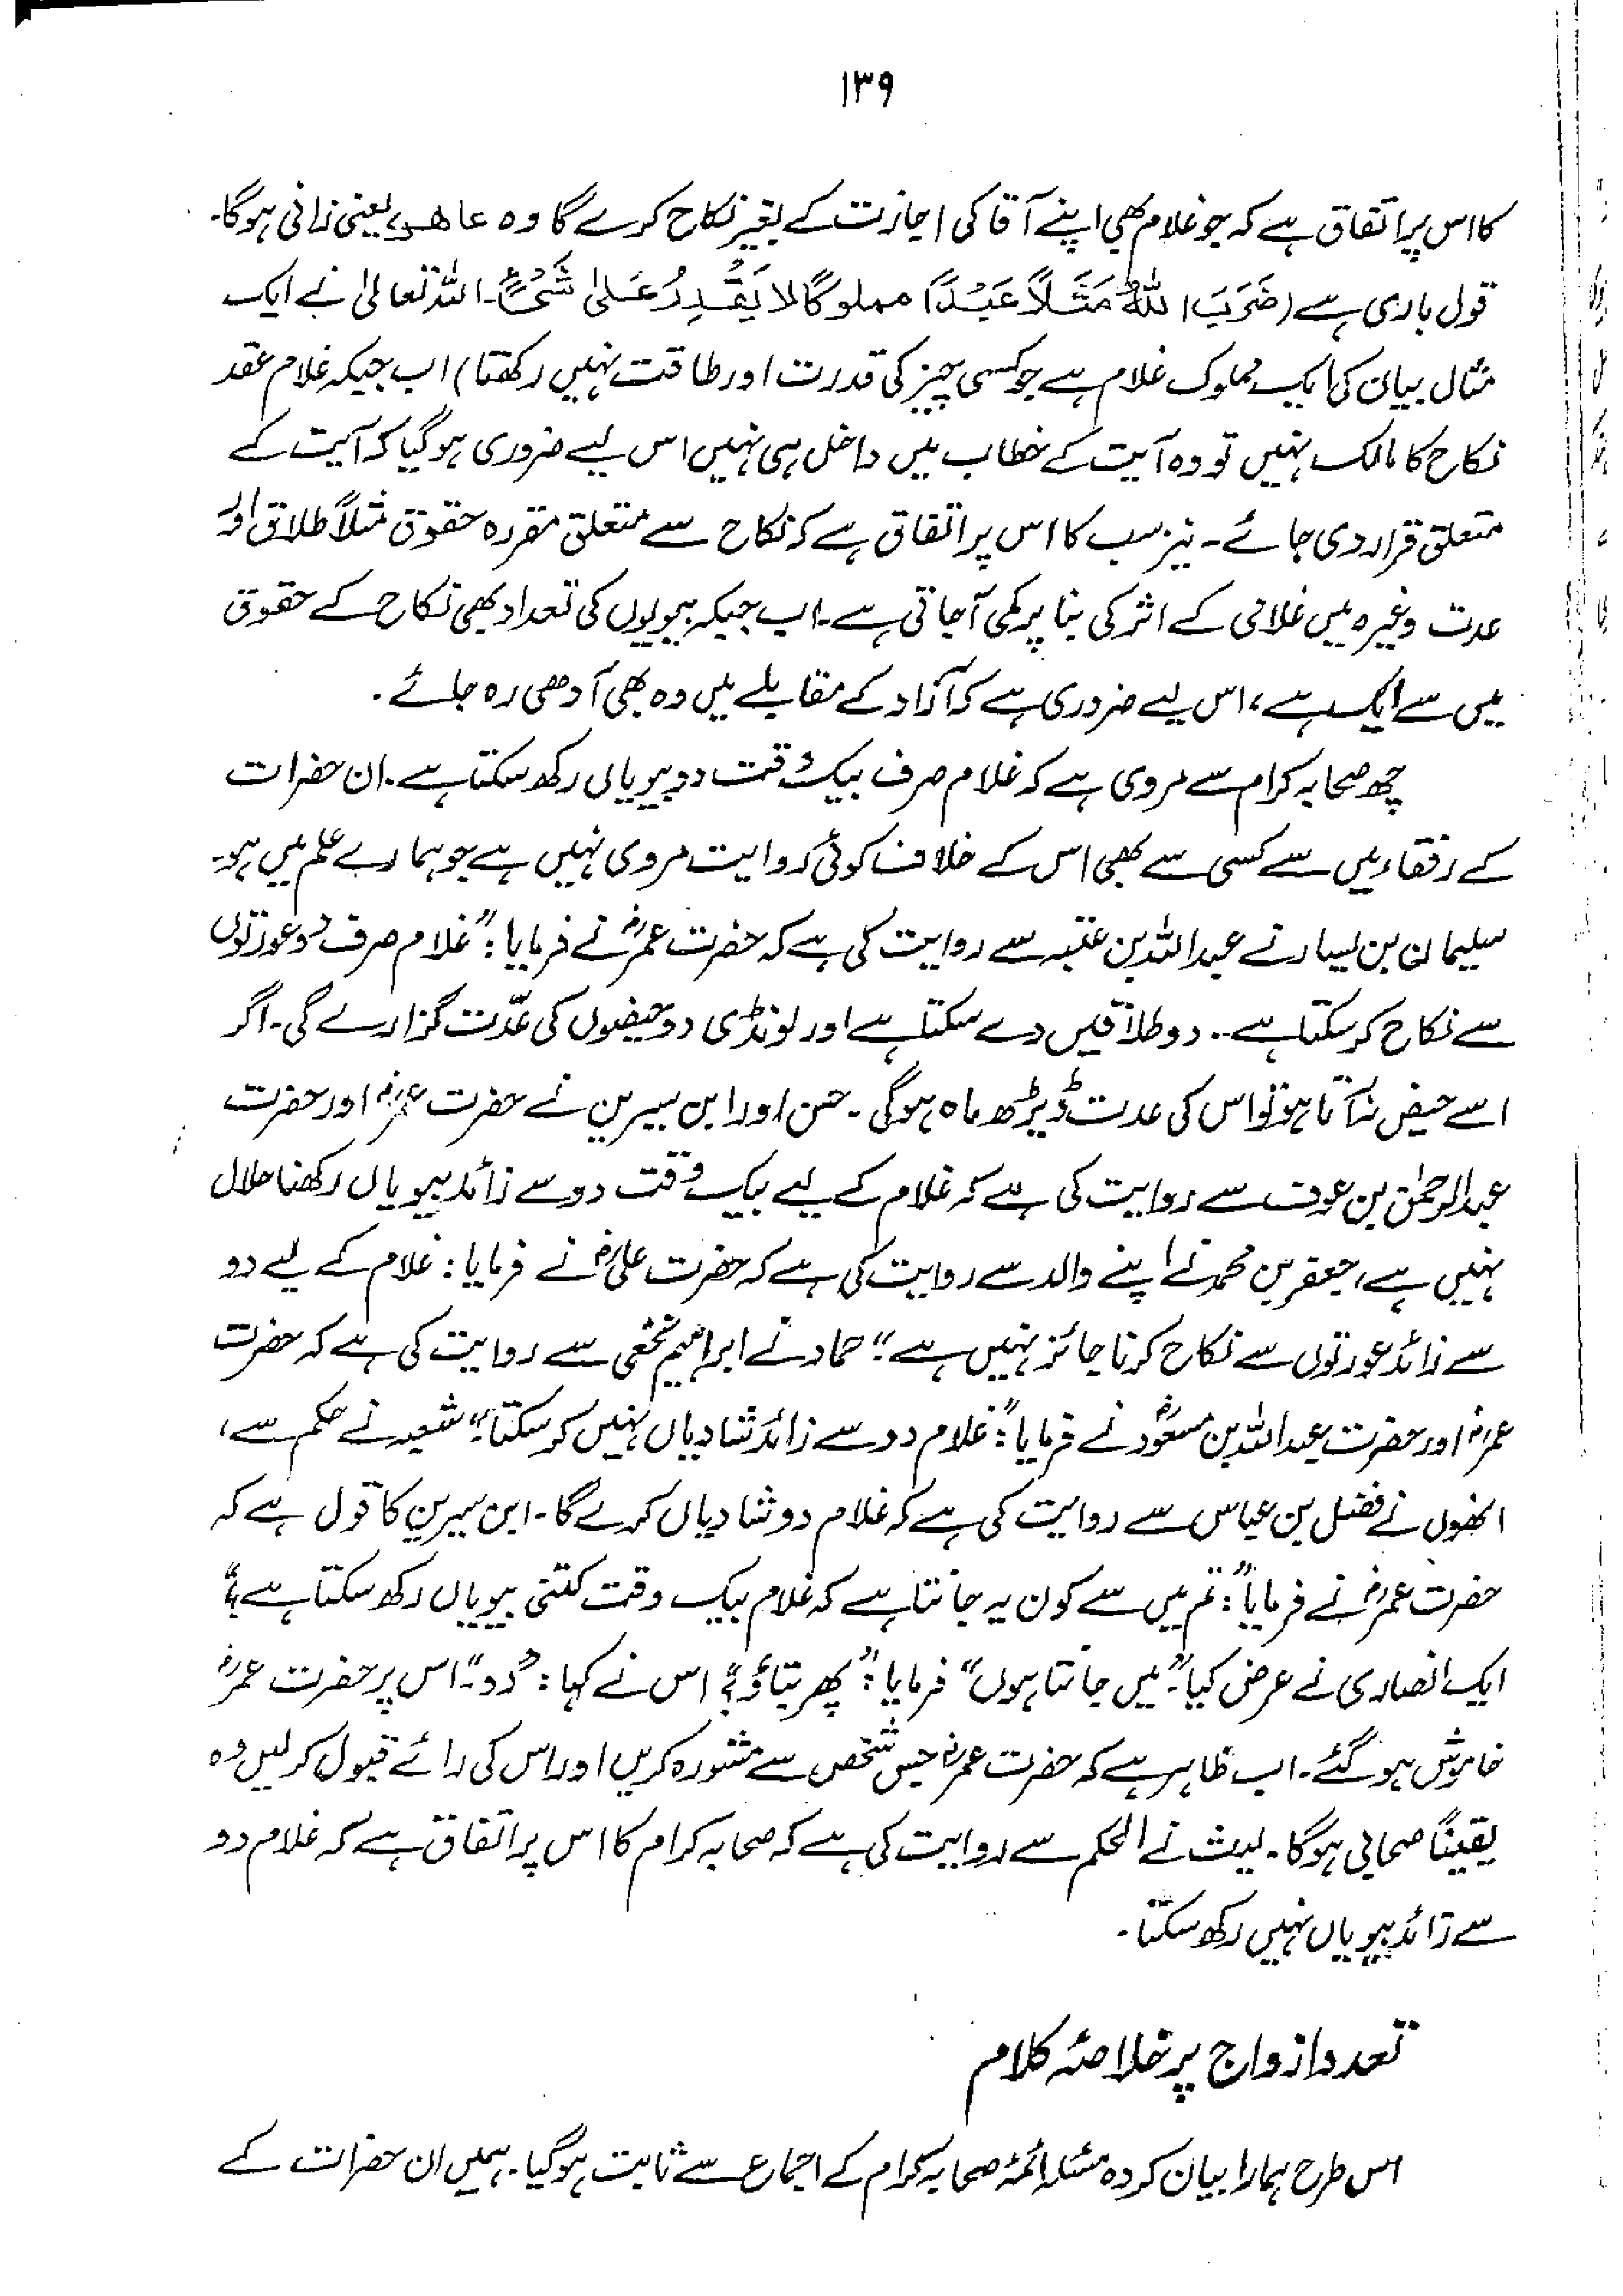 ۱۳۹
کا اس پر اتفاق ہے کہ جو غلام بھی اپنے آقا کی اجازت کے بغیر نکاح کرے گا وہ عاھر یعنی زانی ہوگا۔
قول باری ہے (ضَرَبَ اللّٰهُ مَثَلًا عَبْدًا مملوکًا لا یَقْدِرُ عَلیٰ شَیْءٍ۔ اللہ تعالیٰ نے ایک
مثال بیان کی ایک مملوک غلام ہے جو کسی چیز کی قدرت اور طاقت نہیں رکھتا) اب جبکہ غلام عقد
نکاح کا مالک نہیں تو وہ آیت کے خطاب میں داخل ہی نہیں اس لیے ضروری ہوگیا کہ آیت کے
متعلق قرار دی جائے۔ نیز سب کا اس پر اتفاق ہے کہ نکاح سے متعلق مقررہ حقوق مثلاً طلاق اور
عدت وغیرہ میں غلامی کے اثر کی بنا پر کمی آجاتی ہے۔ اب جبکہ بیویوں کی تعداد بھی نکاح کے حقوق
میں سے ایک ہے، اس لیے ضروری ہے کہ آزاد کے مقابلے میں وہ بھی آدھی رہ جائے۔
چھ صحابہ کرام سے مروی ہے کہ غلام صرف بیک وقت دو بیویاں رکھ سکتا ہے۔ ان حضرات
کے رفقاء میں سے کسی سے بھی اس کے خلاف کوئی روایت مروی نہیں ہے جو ہمارے علم میں ہو۔
سلیمان بن یسار نے عبداللہ بن عتبہ سے روایت کی ہے کہ حضرت عمرؓ نے فرمایا: "غلام صرف دو عورتوں
سے نکاح کرسکتا ہے۔۔ دو طلاقیں دے سکتا ہے اور لونڈی دو حیضوں کی عدّت گزارے گی۔ اگر
اسے حیض نہ آتا ہو تو اس کی عدت ڈیڑھ ماہ ہوگی۔ حسن اور ابن سیرین نے حضرت عمرؓ اور حضرت
عبدالرحمٰن بن عوف سے روایت کی ہے کہ غلام کے لیے بیک وقت دو سے زائد بیویاں رکھنا حلال
نہیں ہے، جعفر بن محمد نے اپنے والد سے روایت کی ہے کہ حضرت علیؓ نے فرمایا: غلام کے لیے دو
سے زائد عورتوں سے نکاح کرنا جائز نہیں ہے" حماد نے ابراہیم نخعی سے روایت کی ہے کہ حضرت
عمرؓ اور حضرت عبداللہ بن مسعودؓ نے فرمایا: "غلام دو سے زائد شادیاں نہیں کرسکتا" شعبہ نے حکم سے،
انھوں نے فضل بن عباس سے روایت کی ہے کہ غلام دو شادیاں کرے گا۔ ابن سیرین کا قول ہے کہ
حضرت عمرؓ نے فرمایا: "تم میں سے کون یہ جانتا ہے کہ غلام بیک وقت کتنی بیویاں رکھ سکتا ہے؟"
ایک انصاری نے عرض کیا۔ "میں جانتا ہوں" فرمایا: "پھر بتاؤ؟" اس نے کہا: "دو"۔ اس پر حضرت عمرؓ
خاموش ہوگئے۔ اب ظاہر ہے کہ حضرت عمرؓ جس شخص سے مشورہ کریں اور اس کی رائے قبول کرلیں وہ
یقیناً صحابی ہوگا۔ لیث نے الحکم سے روایت کی ہے کہ صحابہ کرام کا اس پر اتفاق ہے کہ غلام دو
سے زائد بیویاں نہیں رکھ سکتا۔
تعدد ازواج پر خلاصئہ کلام
اس طرح ہمارا بیان کردہ مسئلہ ائمہ صحابہ کرام کے اجماع سے ثابت ہوگیا۔ ہمیں ان حضرات کے